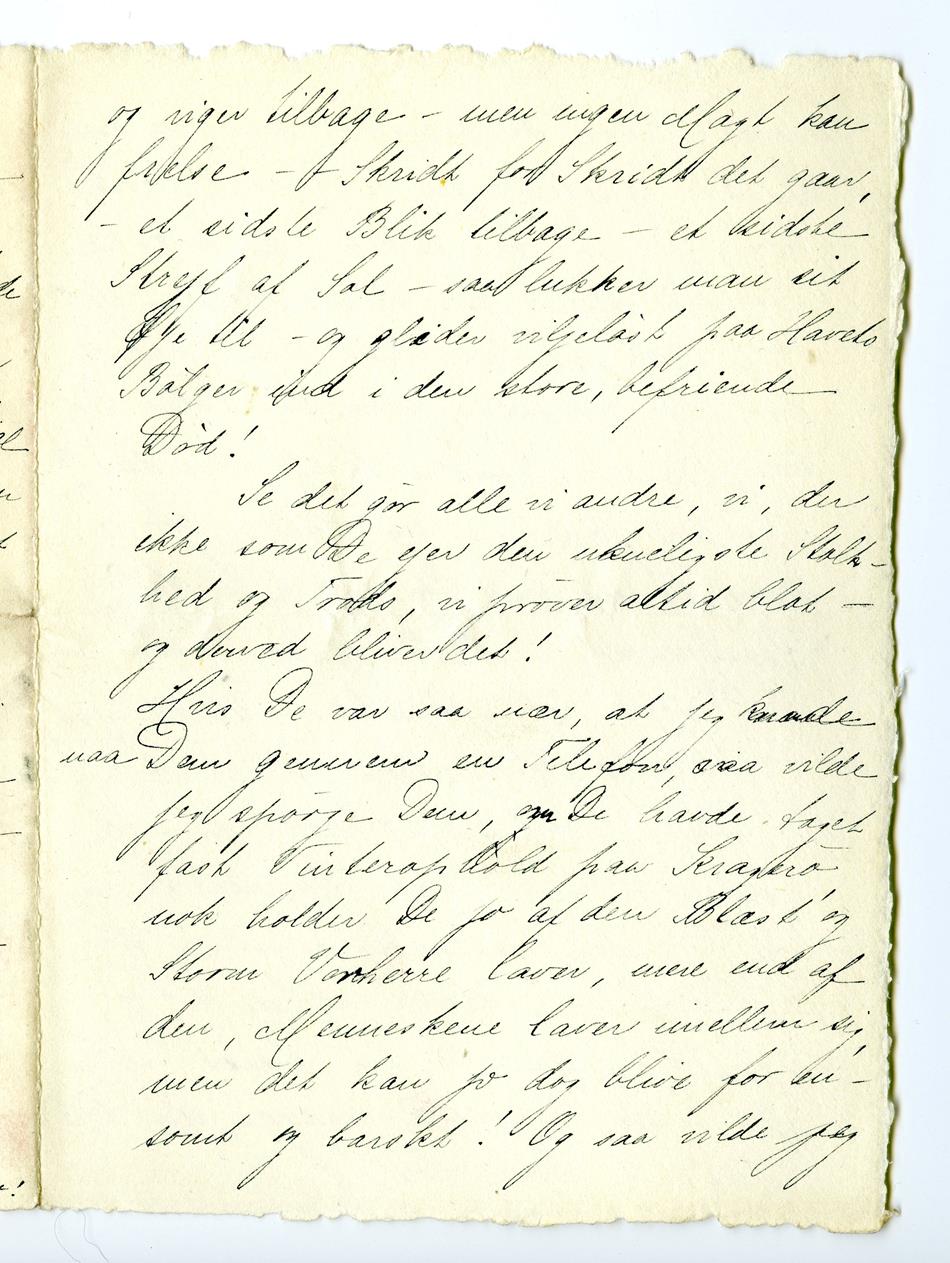 og viger tilbage – men ingen Magt kan
frelse – – Skridt for Skridt det gaar,
– et sidste Blik tilbage – et sidste
Strejf af Sol – saa lukker man sit
Øje til – og glider viljeløst paa Havets
Bølger ind i den store, befriende
Død!
Se det gør alle vi andre, vi, der
ikke som De ejer den ukueligste Stolt-
hed og Trods, vi prøver altid blot –
og derved bliver det!
Hvis De var saa nær, at jeg kunde
naa Dem gennem en Telefon, saa vilde
jeg spørge Dem, om De havde taget
fast Vinterophold paa Kragerø
nok holder De jo af den Blæst og
Storm Vorherre laver, mere end af
den, Menneskene laver imellem sig,
men det kan jo dog blive for en-
somt og barskt! Og saa vilde jeg